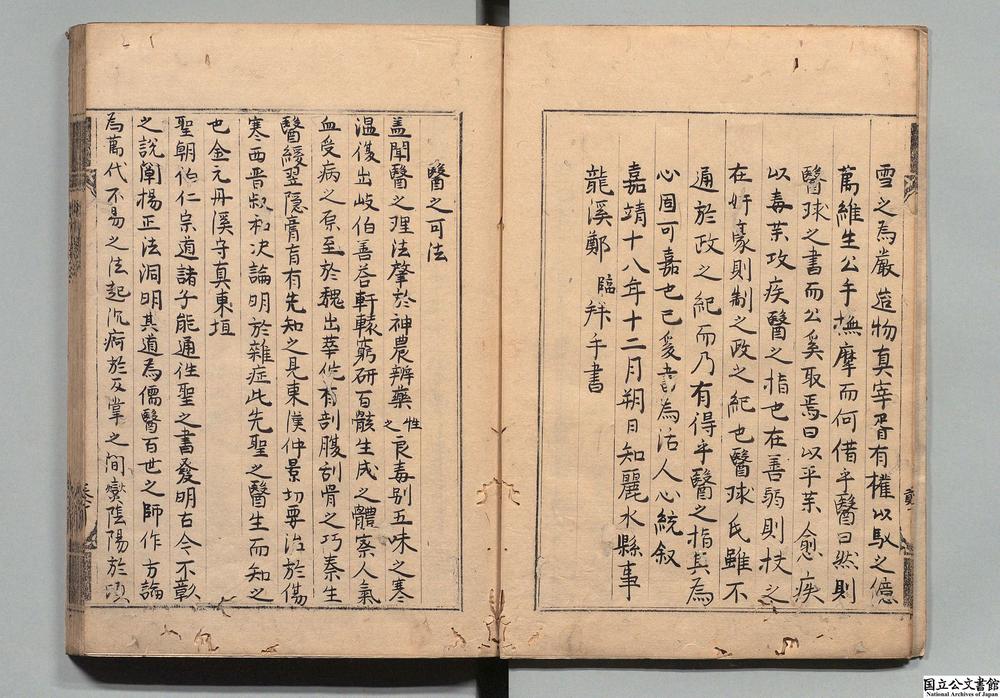 雪之為嚴造物真宰胥有權以馭之億
萬維生公手撫摩而何借乎醫曰然則
醫球之書而公奚取焉曰以平茉愈疾
以毒茉攻疾醫之指也在善弱則扶之
在奸豪則制之政之紀也醫球氏雖不
通於政之紀而乃有得乎醫之指其為
心固可嘉也已爰書為活人心統叙
嘉靖十八年十二月朔日知麗水縣事
龍溪鄭 臨 拜手書
醫之可法
盖聞醫之理法肇於神農辨藥性之良毒别五味之寒
温復出岐伯善荅軒轅窮研百骸生成之體察人氣
血受病之原至於魏出華佗有剖腹刮骨之巧秦生
醫緩翌隱膏肓有先知之見東漢仲景切要治於傷
寒西晋叔和决論明於雜症此先聖之醫生而知之
也金元丹溪守真東垣
聖朝伯仁宗道諸子能通徃聖之書發明古今不彰
之說闡揚正法洞明其道為儒醫百世之師作方論
為萬代不易之法起沉疴於反掌之間燮隂陽於頃
国立公文書館
National Archives of Japan